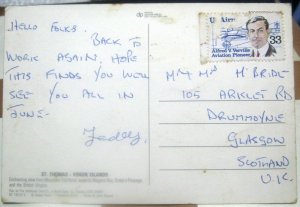 HELLO FOLKS.
BACK TO
WORK AGAIN, HOPE
THIS FINDS YOU WELL
SEE YOU ALL IN
JUNE-
ST. THOMAS - VIRGIN ISLANDS
and the British Virgins
33
Alfred V. Verville
Aviation Pioneer
MR & MRS M'BRIDE
105 ARKLET RD
DRUMMOYNE
GLASGOW
SCOTLAND
U.K.